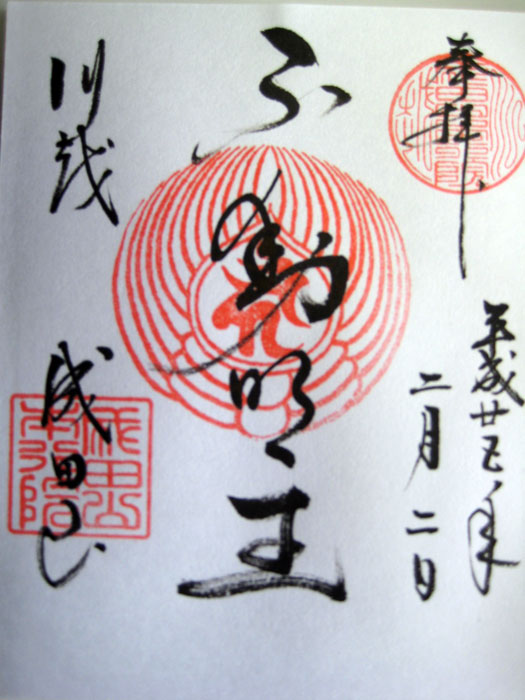 奉拝
平成廿五年
二月二日
不動明王
川越
成田山